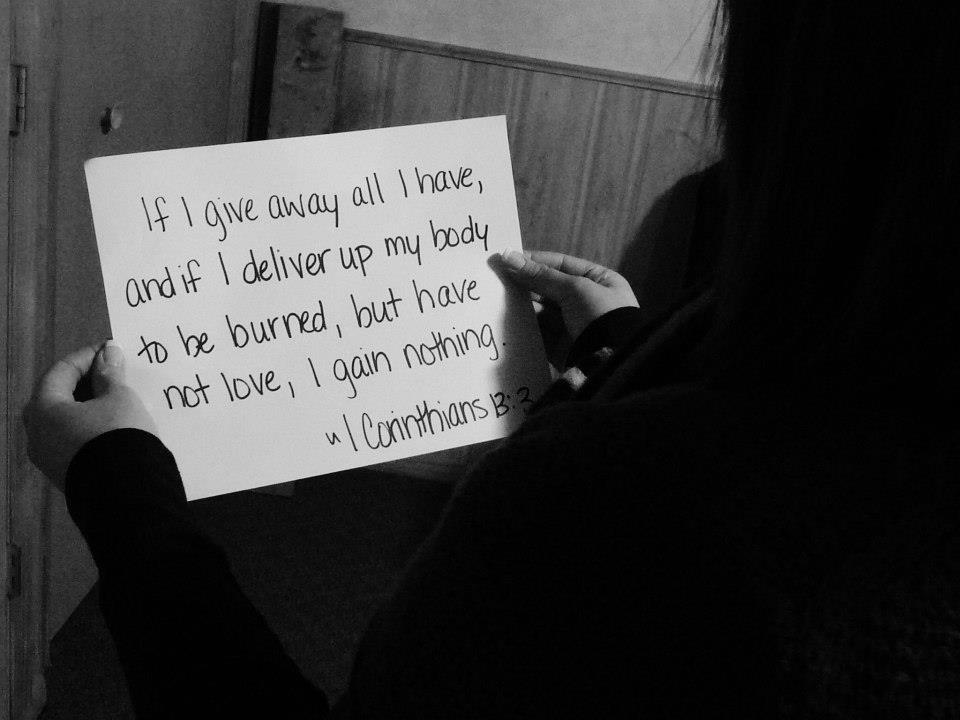 If I give away all I have,
and if I deliver up my body
to be burned, but have
not love, I gain nothing.
~ 1 Corinthians 13:3